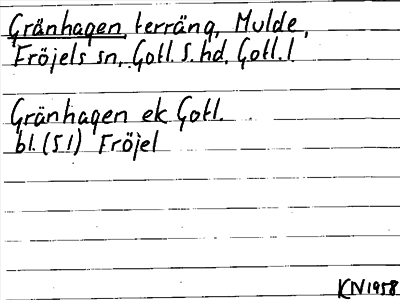 Gränhagen, terräng, Mulde,
Fröjels sn, Gotl. S. hd, Gotl. l
Gränhagen ek Gotl.
bl. (51) Fröjel
KN 1958